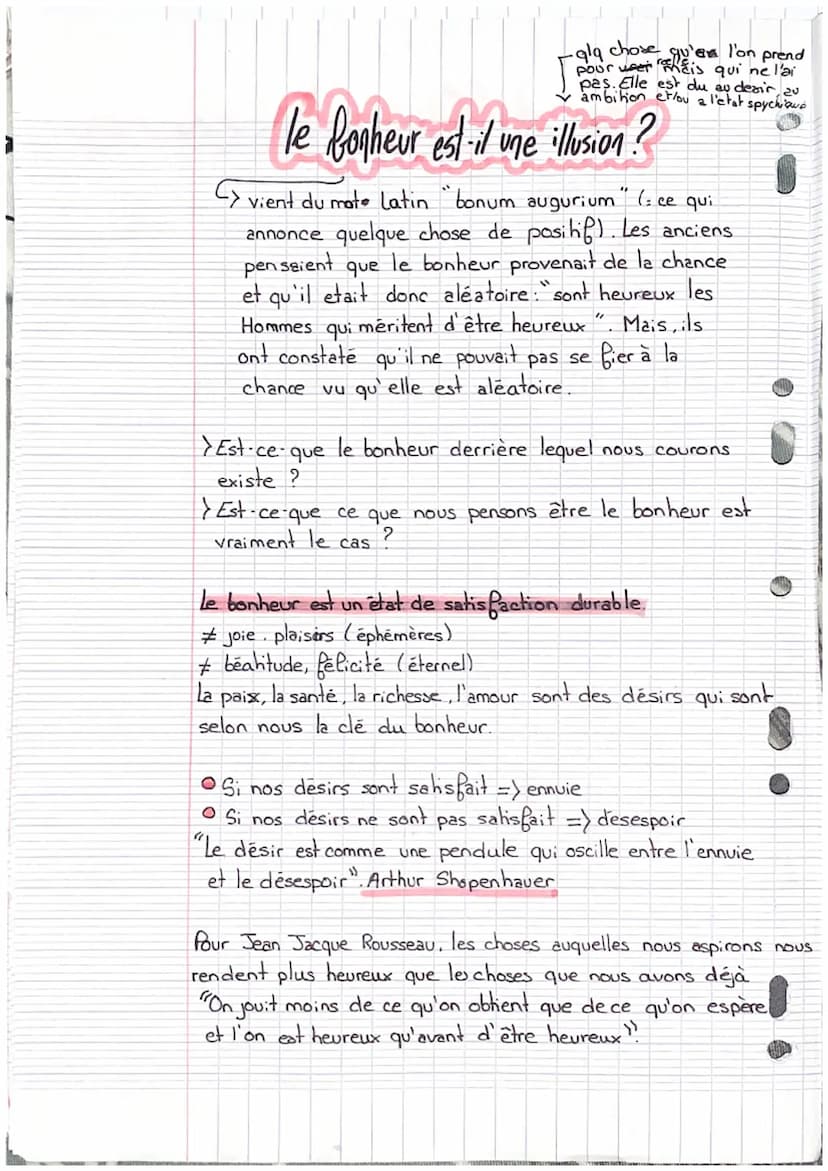 qlq chose qu'on l'on prend
pour réelle mais qui ne l'ai
pas. Elle est du au desir, au
ambition et/ou a l'état spychique
le bonheur est-il une illusion ?
↳ vient du mot latin "bonum augurium" (= ce qui
annonce quelque chose de positif). Les anciens
pensaient que le bonheur provenait de la chance
et qu'il etait donc aléatoire : "sont heureux les
Hommes qui méritent d'être heureux". Mais, ils
ont constaté qu'il ne pouvait pas se fier à la
chance vu qu'elle est aléatoire.
> Est-ce-que le bonheur derrière lequel nous courons
existe ?
> Est-ce-que ce que nous pensons être le bonheur est
vraiment le cas ?
le bonheur est un état de satisfaction durable.
≠ joie. plaisirs (éphémères)
≠ béatitude, félicité (éternel)
La paix, la santé, la richesse, l'amour sont des désirs qui sont
selon nous la clé du bonheur.
● Si nos désirs sont satisfait => ennuie
● Si nos désirs ne sont pas satisfait => desespoir
"Le désir est comme une pendule qui oscille entre l'ennuie
et le désespoir". Arthur Shopenhauer
Pour Jean Jacque Rousseau, les choses auquelles nous aspirons nous
rendent plus heureux que les choses que nous avons déjà
"On jouit moins de ce qu'on obtient que de ce qu'on espère
et l'on est heureux qu'avant d'être heureux".